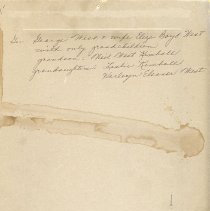 George West & wife Eliza Boyd West
only grandchildren
grandson - Neil West Kimball
granddaughters Leslie Kimball
Eleanor West